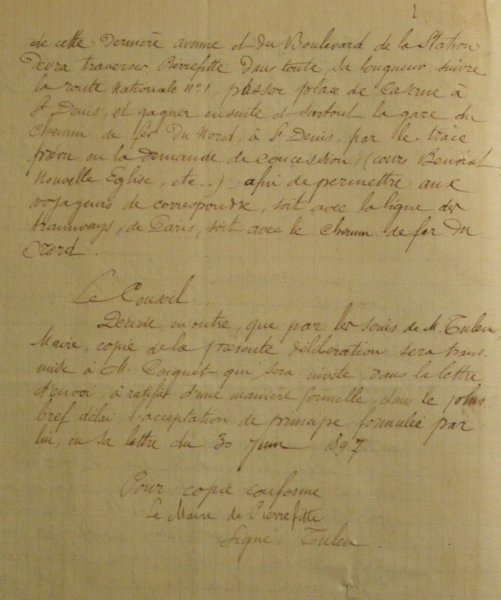 de cette dernière avenue et du Boulevard de la Station
devra traverser Pierrefitte dans toute sa longueur suivre
la route nationale n° 1, passer place de Caserne à
St Denis, et gagner ensuite et surtout la gare du
Chemin de fer du Nord, à St Denis, par le tracé
prévu en la demande de concession, (cours Benoist
Nouvelle Eglise, etc..) afin de permettre aux
voyageurs de correspondre, soit avec la ligne des
tramways, de Paris, soit avec le chemin de fer du
Nord.
Le Conseil,
Décide, en outre, que par les soins de M. Tuleu
Maire, copie de la présente délibération sera trans
mise à M. Coignet qui sera invité, dans la lettre
d'envoi, à ratifier d'une manière formelle, dans le plus
bref délai, l'acceptation de principe formulée par
lui, en sa lettre du 30 Juin 1897
Pour copie conforme
Le Maire de Pierrefitte
Signé: Tuleu.